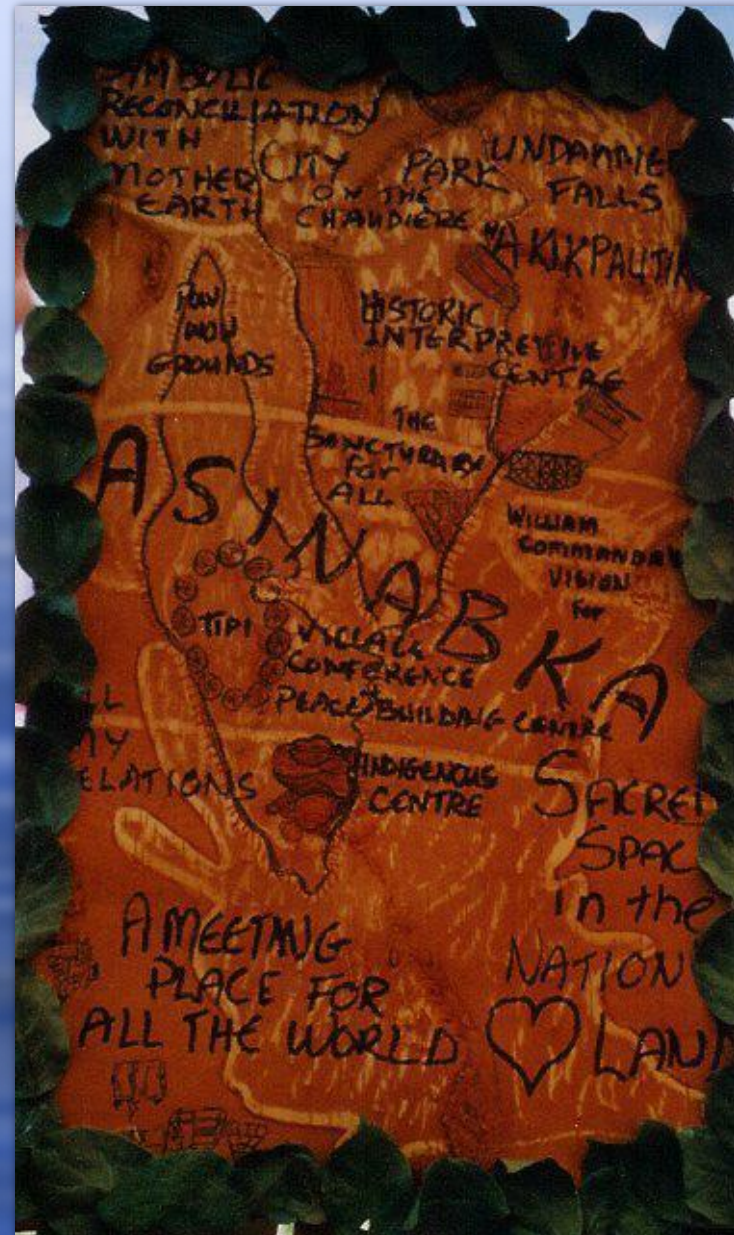 SYMBOLIC
RECONCILIATION
WITH
MOTHER
EARTH
CITY PARK
ON THE
CHAUDIÈRE
UNDAMMED
FALLS
AKIKPAUTIK
POW
WOW
GROUNDS
HISTORIC
INTERPRETIVE
CENTRE
THE
SANCTURARY
For
ALL
ASINABKA
WILLIAM
COMMANDA'S
VISION
For
TIPI
VILLAGE
CONFERENCE
PEACE BUILDING CENTRE
INDIGENOUS
CENTRE
LL
MY
ELATIONS
SACRED
SPAC
in the
NATION
LAND
A MEETING
PLACE FOR
ALL THE WORLD